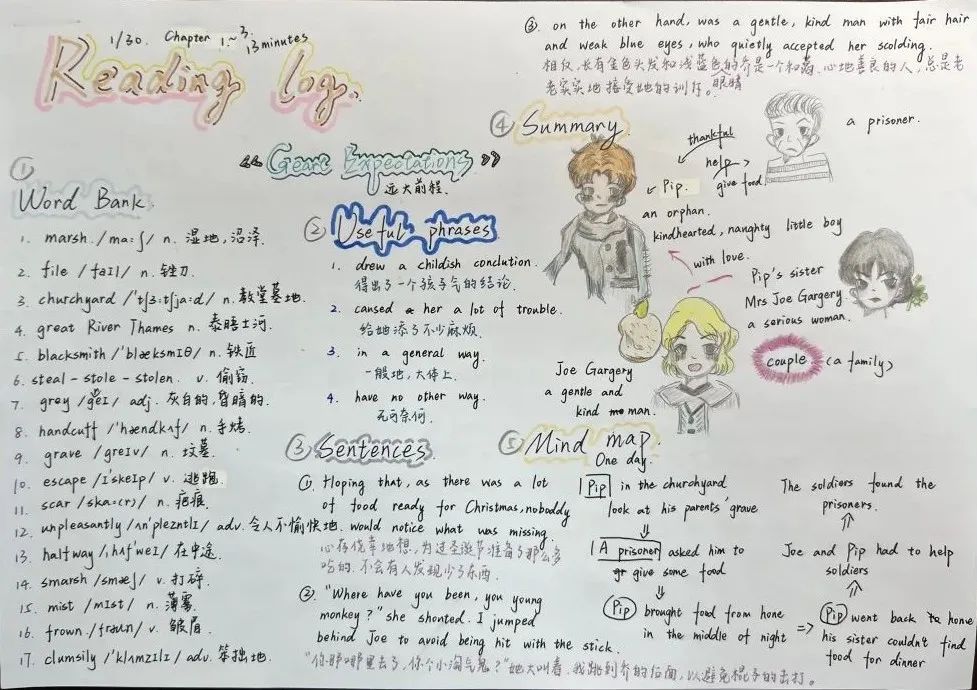 1/30. Chapter 1~3.
13 minutes
Reading log.
《Great Expectations》
远大前程.
①
Word Bank
1. marsh /maːʃ/ n. 湿地,沼泽.
2. file /faɪl/ n. 锉刀.
3. churchyard /'tʃɜːtʃjaːd/ n. 教堂墓地.
4. great River Thames n. 泰晤士河.
5. blacksmith /'blæksmɪθ/ n. 铁匠
6. steal-stole-stolen. v. 偷窃.
7. grey /greɪ/ adj. 灰白的,昏暗的.
8. handcuff /'hændkʌf/ n. 手烤.
9. grave /greɪv/ n. 坟墓.
10. escape /ɪ'skeɪp/ v. 逃跑.
11. scar /skaː(r)/ n. 疤痕.
12. unpleasantly /ʌn'plezntlɪ/ adv. 令人不愉快地.
13. halfway /ˌhʌf'weɪ/ 在中途.
14. smarsh /smæʃ/ v. 打碎.
15. mist /mɪst/ n. 薄雾.
16. frown /fraun/ v. 皱眉.
17. clumsily /'klʌmzɪlɪ/ adv. 笨拙地.
② Useful phrases
1. drew a childish conclution.
得出了一个孩子气的结论.
2. caused her a lot of trouble.
给她添了不少麻烦.
3. in a general way.
一般地,大体上.
4. have no other way.
无可奈何.
③ Sentences
①. Hoping that, as there was a lot
of food ready for Christmas, noboddy
would notice what was missing.
心存侥幸地想,为过圣诞节准备了那么多
吃的,不会有人发现少了东西.
②. "Where have you been, you young
monkey?" she shonted. I jumped
behind Joe to avoid being hit with the stick.
"你野哪里去了,你个小淘气鬼?"她大叫着,我跳到乔的后面,以避免棍子的击打.
③. on the other hand, was a gentle, kind man with fair hair
and weak blue eyes, who quietly accepted her scolding.
相反,长有金色头发和浅蓝色的乔是一个和蔼、心地善良的人,总是老
眼睛
老实实地接受她的训斥。
④ Summary
a prisoner.
thankful
help
give food
Pip.
an orphan.
kindhearted, naughty little boy
with love.
Pip's sister
Mrs Joe Gargery
a serious woman.
couple (a family)
Joe Gargery
a gentle and
kind man.
⑤ Mind map.
One day.
Pip in the churchyard
look at his parents' grave
A prisoner asked him to
give some food
Pip brought food from home
in the middle of night
=> Pip went back home
his sister couldn't find
food for dinner
Joe and Pip had to help
soldiers
The soldiers found the
prisoners.